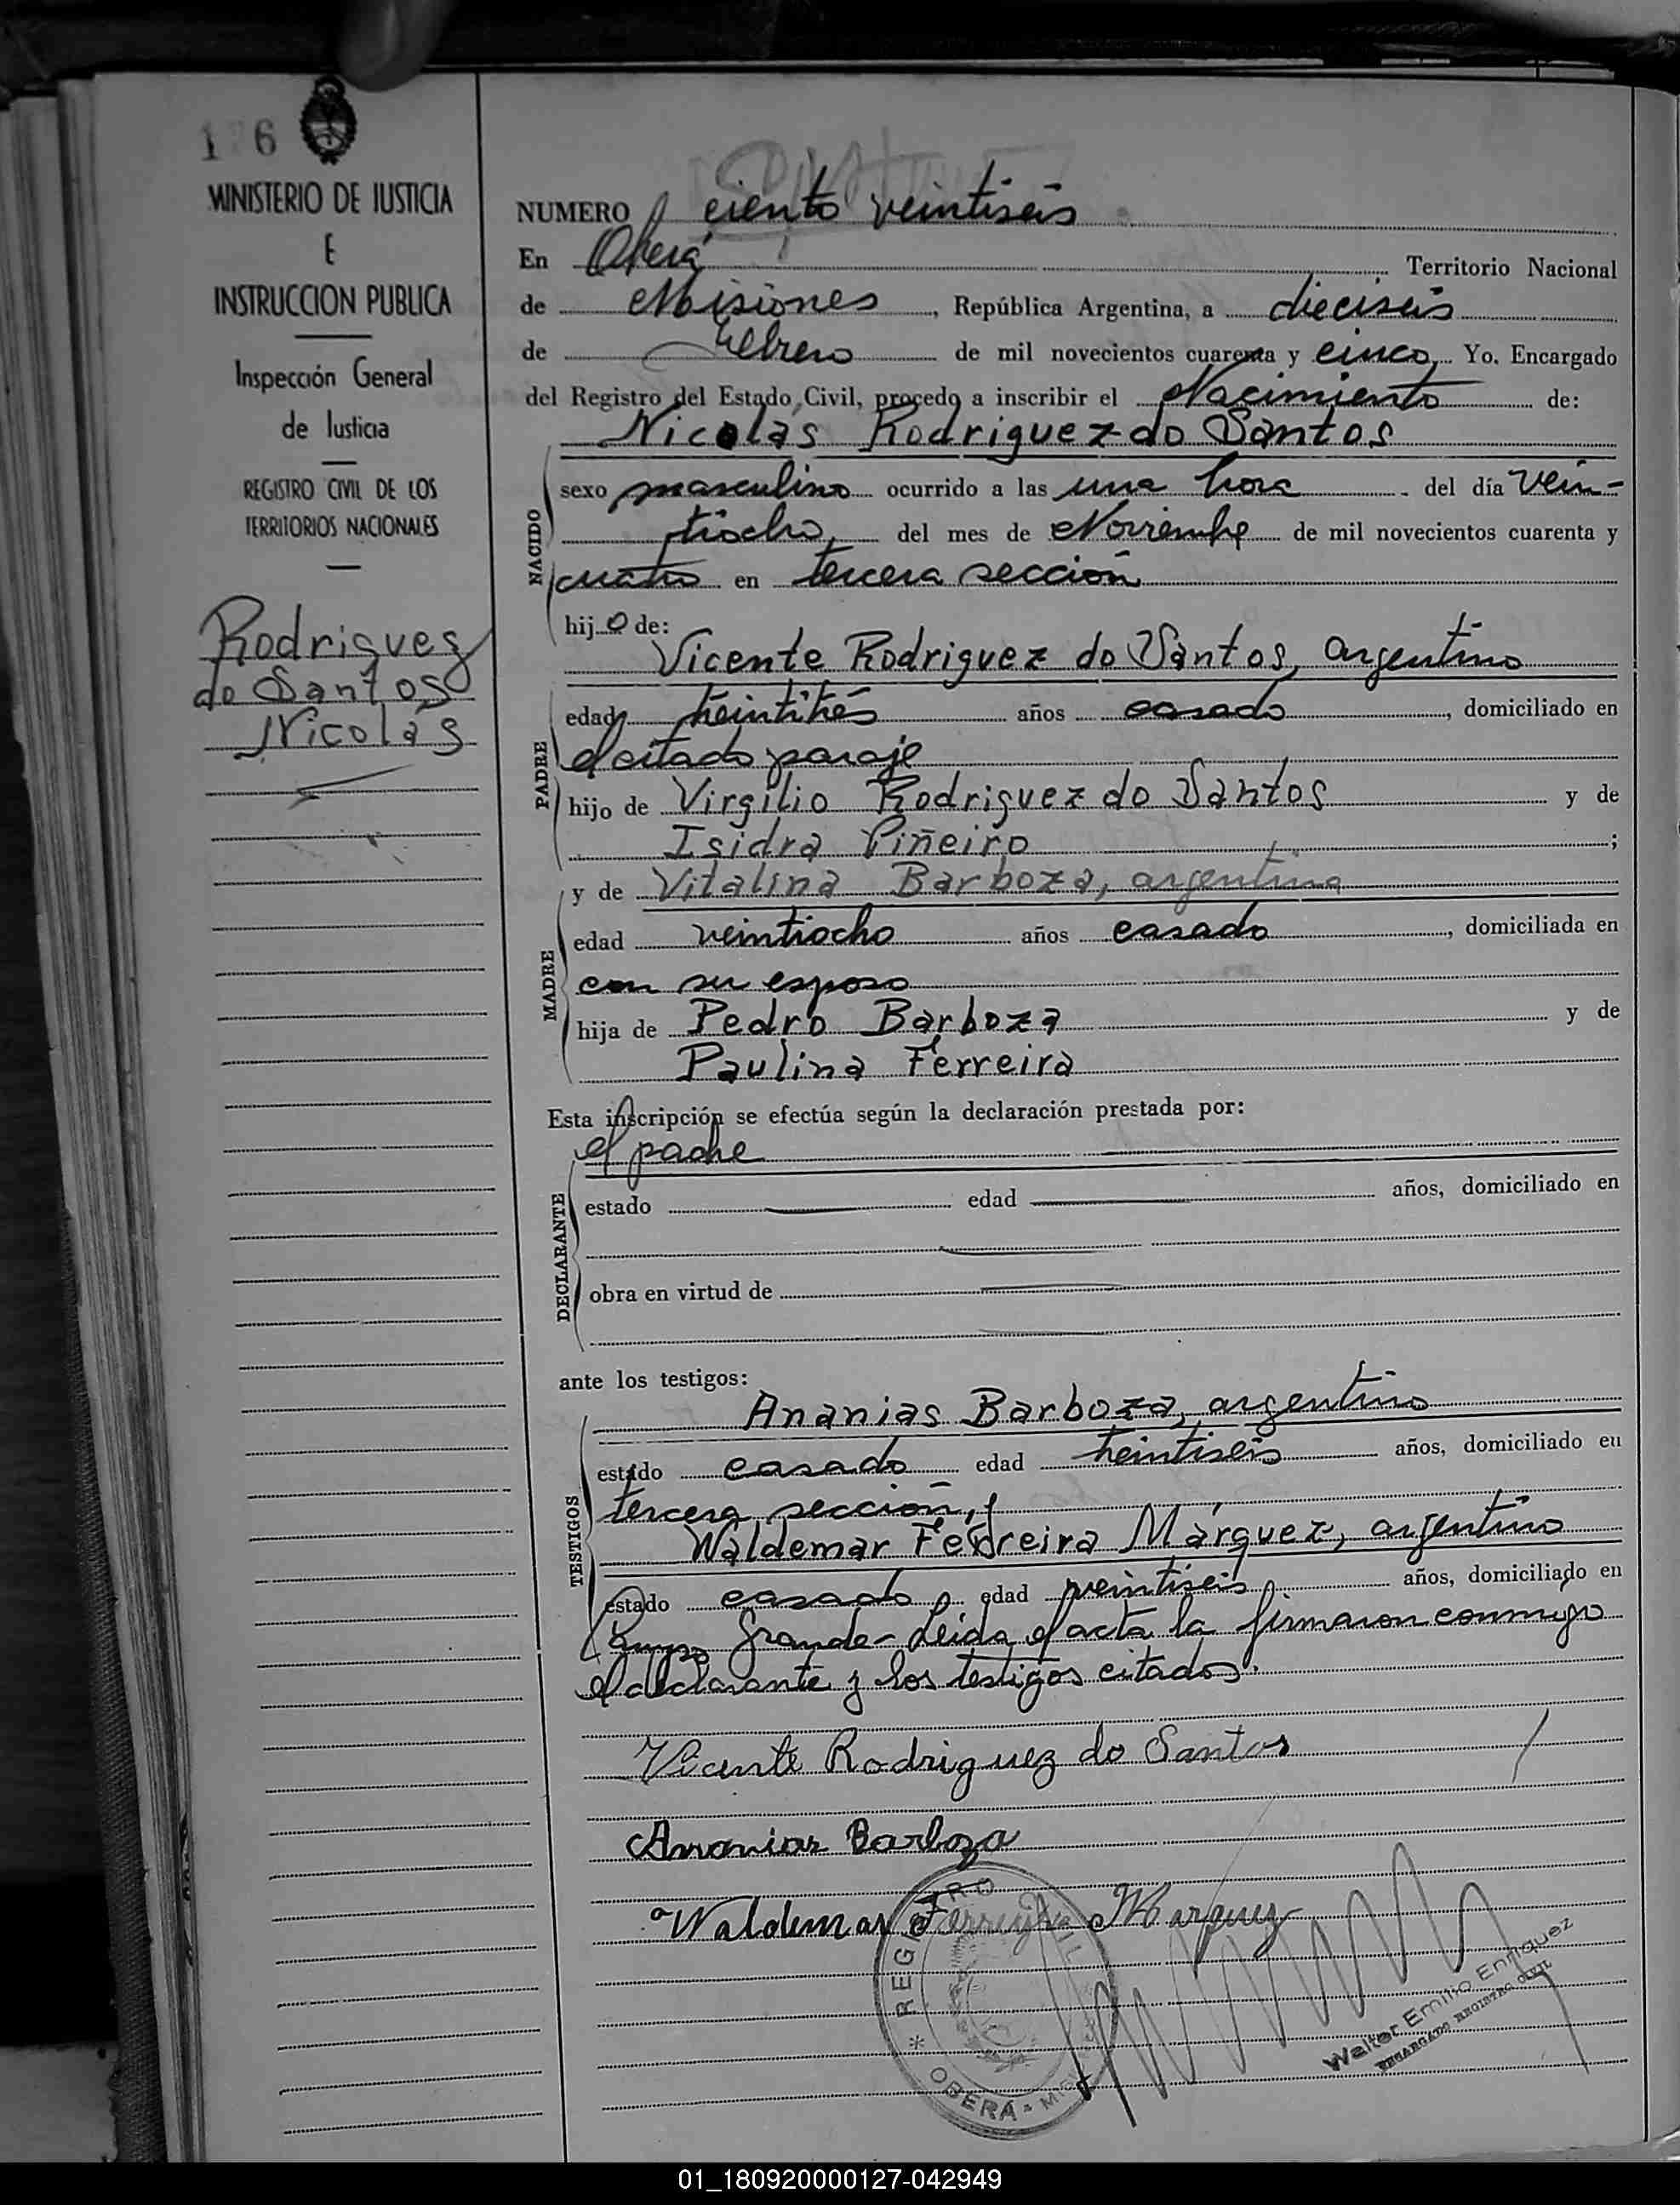 1 6
MINISTERIO DE JUSTICIA
E
INSTRUCCION PUBLICA
Inspección General
de Justicia
REGISTRO CIVIL DE LOS
TERRITORIOS NACIONALES
Rodriguez
do Santos
Nicolás
NUMERO ciento veintiseis
En Oberá Territorio Nacional
de Misiones, República Argentina, a dieciseis
de Febrero de mil novecientos cuarenta y cinco, Yo. Encargado
del Registro del Estado Civil, procedo a inscribir el Nacimiento de:
Nicolás Rodriguez do Santos
NACIDO
sexo masculino ocurrido a las una hora del día vein-
tiocho, del mes de Noviembre de mil novecientos cuarenta y
cuatro en tercera sección
hijo de:
Vicente Rodriguez do Santos, argentino
PADRE
edad treintitrés años casado, domiciliado en
el citado paraje
hijo de Virgilio Rodriguez do Santos y de
Isidra Piñeiro;
y de Vitalina Barboza, argentina
MADRE
edad veintiocho años casado, domiciliada en
con su esposo
hija de Pedro Barboza y de
Paulina Ferreira
Esta inscripción se efectúa según la declaración prestada por:
el padre
DECLARANTE
estado edad años, domiciliado en
obra en virtud de
ante los testigos:
Ananias Barboza, argentino
TESTIGOS
estado casado edad treintiseis años, domiciliado en
tercera sección, y
Waldemar Ferreira Márquez, argentino
estado casado edad veintiseis años, domiciliado en
Campo Grande- Leida el acta la firmaron conmigo
el declarante y los testigos citados.
Vicente Rodriguez do Santos
Ananias Barboza
Waldemar Ferreira Marquez
REGISTRO CIVIL
OBERA - MISIONES
Walter Emilio Enriquez
ENCARGADO REGISTRO CIVIL
01_180920000127-042949